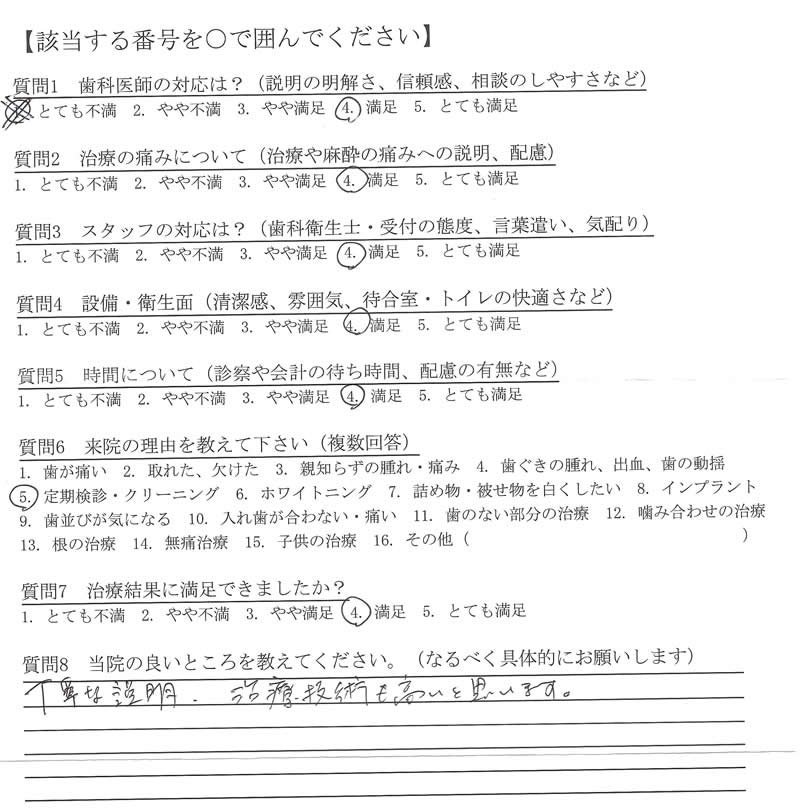 【該当する番号を○で囲んでください】
質問1　歯科医師の対応は？（説明の明解さ、信頼感、相談のしやすさなど）
とても不満 2. やや不満 3. やや満足 4. 満足 5. とても満足
質問2　治療の痛みについて（治療や麻酔の痛みへの説明、配慮）
1. とても不満 2. やや不満 3. やや満足 4. 満足 5. とても満足
質問3　スタッフの対応は？（歯科衛生士・受付の態度、言葉遣い、気配り）
1. とても不満 2. やや不満 3. やや満足 4. 満足 5. とても満足
質問4　設備・衛生面（清潔感、雰囲気、待合室・トイレの快適さなど）
1. とても不満 2. やや不満 3. やや満足 4. 満足 5. とても満足
質問5　時間について（診察や会計の待ち時間、配慮の有無など）
1. とても不満 2. やや不満 3. やや満足 4. 満足 5. とても満足
質問6　来院の理由を教えて下さい（複数回答）
1. 歯が痛い 2. 取れた、欠けた 3. 親知らずの腫れ・痛み 4. 歯ぐきの腫れ、出血、歯の動揺
5. 定期検診・クリーニング 6. ホワイトニング 7. 詰め物・被せ物を白くしたい 8. インプラント
9. 歯並びが気になる 10. 入れ歯が合わない・痛い 11. 歯のない部分の治療 12. 噛み合わせの治療
13. 根の治療 14. 無痛治療 15. 子供の治療 16. その他（　　　）
質問7　治療結果に満足できましたか？
1. とても不満 2. やや不満 3. やや満足 4. 満足 5. とても満足
質問8　当院の良いところを教えてください。（なるべく具体的にお願いします）
丁寧な説明、治療技術も高いと思います。